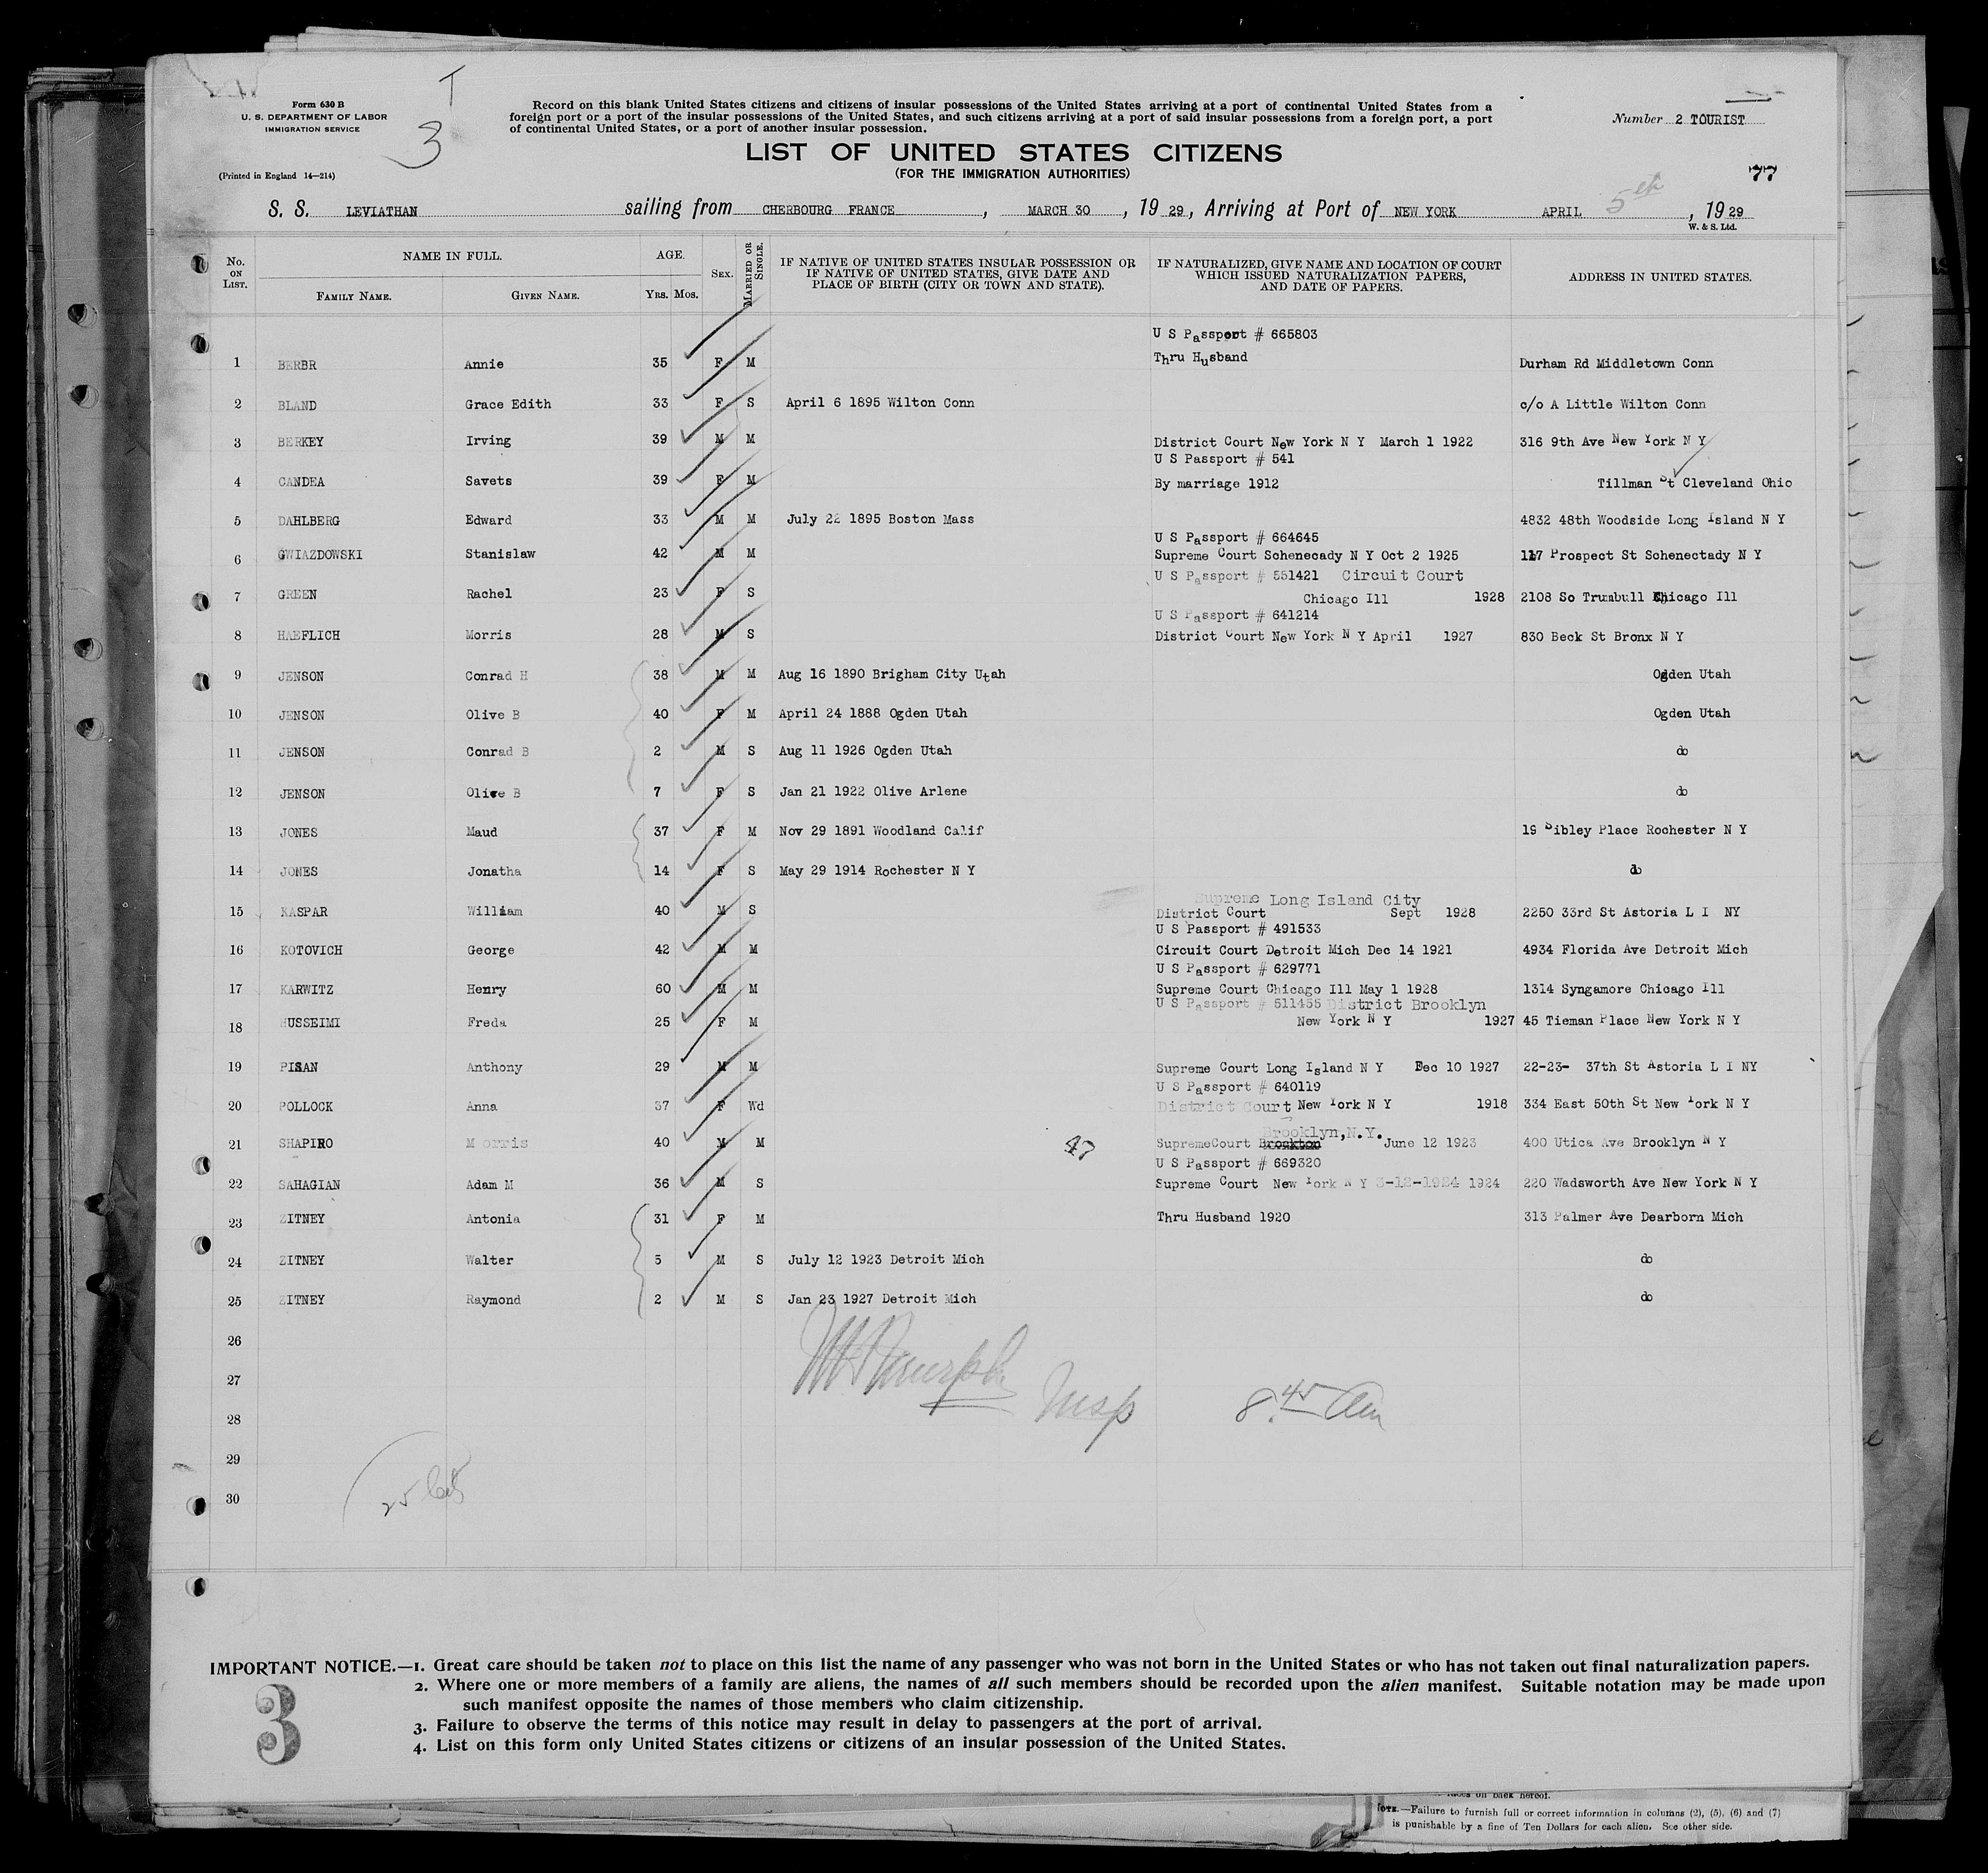 T
3
Form 630 B
U. S. DEPARTMENT OF LABOR
IMMIGRATION SERVICE
(Printed in England 14—214)
Record on this blank United States citizens and citizens of insular possessions of the United States arriving at a port of continental United States from a
foreign port or a port of the insular possessions of the United States, and such citizens arriving at a port of said insular possessions from a foreign port, a port
of continental United States, or a port of another insular possession.
Number 2 TOURIST
LIST OF UNITED STATES CITIZENS
(FOR THE IMMIGRATION AUTHORITIES)
77
S. S. LEVIATHAN sailing from CHERBOURG FRANCE, MARCH 30, 19 29, Arriving at Port of NEW YORK APRIL 5th, 19 29
W. & S. Ltd.
No. ON LIST. NAME IN FULL. FAMILY NAME. GIVEN NAME. AGE. YRS. MOS. SEX. MARRIED OR SINGLE. IF NATIVE OF UNITED STATES INSULAR POSSESSION OR IF NATIVE OF UNITED STATES, GIVE DATE AND PLACE OF BIRTH (CITY OR TOWN AND STATE). IF NATURALIZED, GIVE NAME AND LOCATION OF COURT WHICH ISSUED NATURALIZATION PAPERS, AND DATE OF PAPERS. ADDRESS IN UNITED STATES.
U S Passport # 665803
1 BERBR Annie 35 F M Thru Husband Durham Rd Middletown Conn
2 BLAND Grace Edith 33 F S April 6 1895 Wilton Conn c/o A Little Wilton Conn
3 BERKEY Irving 39 M M District Court New York N Y March 1 1922 316 9th Ave New York N Y
U S Passport # 541
4 CANDEA Savets 39 F M By marriage 1912 Tillman St Cleveland Ohio
5 DAHLBERG Edward 33 M M July 22 1895 Boston Mass 4832 48th Woodside Long Island N Y
U S Passport # 664645
6 GWIAZDOWSKI Stanislaw 42 M M Supreme Court Schenecady N Y Oct 2 1925 117 Prospect St Schenectady N Y
U S Passport # 551421 Circuit Court
7 GREEN Rachel 23 F S Chicago Ill 1928 2108 So Trumbull Chicago Ill
U S Passport # 641214
8 HAEFLICH Morris 28 M S District Court New York N Y April 1927 830 Beck St Bronx N Y
9 JENSON Conrad H 38 M M Aug 16 1890 Brigham City Utah Ogden Utah
10 JENSON Olive B 40 F M April 24 1888 Ogden Utah Ogden Utah
11 JENSON Conrad B 2 M S Aug 11 1926 Ogden Utah do
12 JENSON Olive B 7 F S Jan 21 1922 Olive Arlene do
13 JONES Maud 37 F M Nov 29 1891 Woodland Calif 19 Sibley Place Rochester N Y
14 JONES Jonatha 14 F S May 29 1914 Rochester N Y do
Supreme Long Island City
15 KASPAR William 40 M S District Court Sept 1928 2250 33rd St Astoria L I NY
U S Passport # 491533
16 KOTOVICH George 42 M M Circuit Court Detroit Mich Dec 14 1921 4934 Florida Ave Detroit Mich
U S Passport # 629771
17 KARWITZ Henry 60 M M Supreme Court Chicago Ill May 1 1928 1314 Syngamore Chicago Ill
U S Passport # 511455 District Brooklyn
18 HUSSEIMI Freda 25 F M New York N Y 1927 45 Tieman Place New York N Y
19 PISAN Anthony 29 M M Supreme Court Long Island N Y Dec 10 1927 22-23- 37th St Astoria L I NY
U S Passport # 640119
20 POLLOCK Anna 37 F Wd District Court New York N Y 1918 334 East 50th St New York N Y
Brooklyn, N.Y.
21 SHAPIRO Morris 40 M M 47 SupremeCourt Brockton June 12 1923 400 Utica Ave Brooklyn N Y
U S Passport # 669320
22 SAHAGIAN Adam M 36 M S Supreme Court New York N Y 3-12-1924 1924 220 Wadsworth Ave New York N Y
23 ZITNEY Antonia 31 F M Thru Husband 1920 313 Palmer Ave Dearborn Mich
24 ZITNEY Walter 5 M S July 12 1923 Detroit Mich do
25 ZITNEY Raymond 2 M S Jan 23 1927 Detroit Mich do
26
27
28
Insp 8.45 Am
29
30
25
IMPORTANT NOTICE.—1. Great care should be taken not to place on this list the name of any passenger who was not born in the United States or who has not taken out final naturalization papers.
2. Where one or more members of a family are aliens, the names of all such members should be recorded upon the alien manifest. Suitable notation may be made upon
such manifest opposite the names of those members who claim citizenship.
3. Failure to observe the terms of this notice may result in delay to passengers at the port of arrival.
4. List on this form only United States citizens or citizens of an insular possession of the United States.
3
NOTE.—Failure to furnish full or correct information in columns (2), (5), (6) and (7)
is punishable by a fine of Ten Dollars for each alien. See other side.